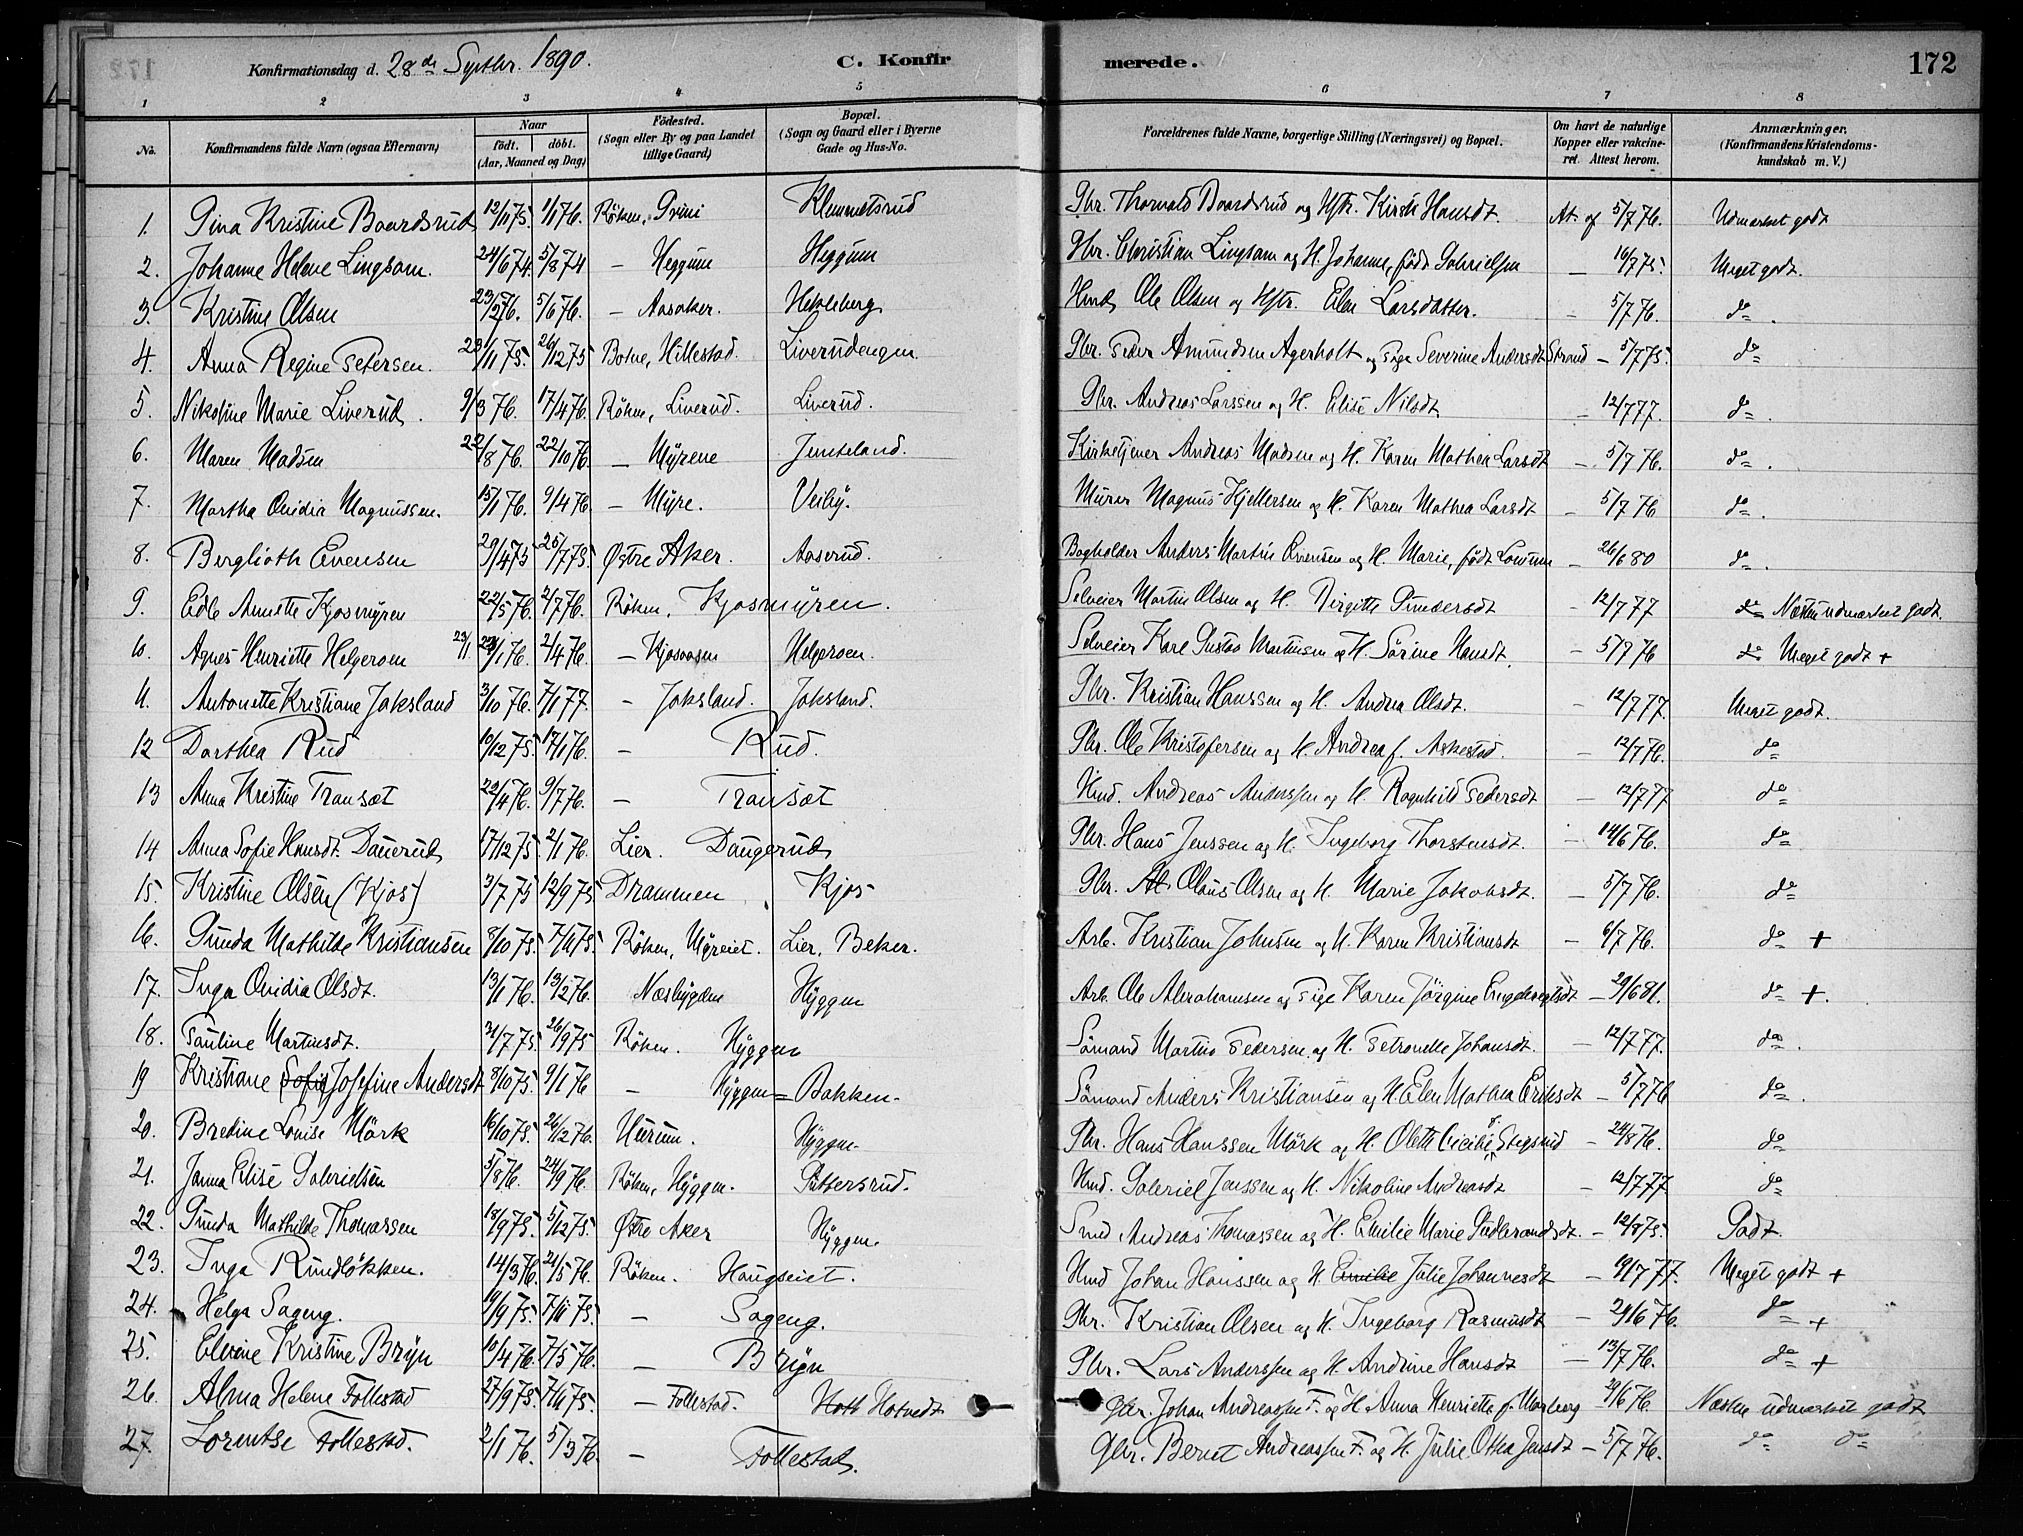 Konfirmationsdag d. 28de Septbr. 1890. C. Konfirmerede. 172
1 2 3 4 5 6 7 8
No. Konfirmandens fulde Navn (ogsaa Efternavn) Naar født. døbt. (Aar, Maaned og Dag) Fødested. (Sogn eller By og paa Landet tillige Gaard) Bopæl. (Sogn og Gaard eller i Byerne Gade og Hus-No. Forældrenes fulde Navne, borgerlige Stilling (Næringsvei) og Bopæl. Om havt de naturlige Kopper eller vakcineret. Attest herom. Anmærkninger. (Konfirmandens Kristendomskundskab m. V.)
1. Gina Kristine Baardsrud 12/11 75. 1/1 76. Röken, Grini Klemmetsrud Gbr. Thorvald Baardsrud og Hstr. Kirsti Hansdt. At. af 5/7 76. Udmærket godt
2. Johanne Helene Lingsom. 24/6 74. 5/8 74 — Heggum Heggum Gbr. Christian Lingsom og H. Johanne, født Gabrielsen — 16/7 75. Meget godt.
3. Kristine Olsen 23/2 76. 5/6 76. — Aasaker. Hekleberg Hmd. Ole Olsen og Hstr. Elen Larsdatter. — 5/7 76. do.
4. Anna Regine Petersen. 23/11 75. 26/12 75 Botne, Hillestad. Liverudengen. Gbr. Peder Amundsen Agerholt og Pige Severine Andersdt Strand — 5/7 75. do
5. Nikoline Marie Liverud. 9/3 76. 17/4 76. Röken, Liverud. Liverud. Gbr. Andreas Larssen og H. Elise Nilsdt — 12/7 77. do.
6. Maren Madsen 22/8 76. 22/10 76. — Myrene Jemtsland. Kirketjener Andreas Madsen og H. Karen Mathea Larsdt — 5/7 76. do.
7. Martha Ovidia Magnussen. 15/1 76. 9/4 76. — Myre. Veiby. Murer Magnus Kjellersen og H. Karen Mathea Larsdt — 5/7 76 do.
8. Berglioth Evensen 29/4 75 25/7 75. Østre Aker. Aaserud. Bogholder Anders Martin Evensen og H. Marie, født — 26/6 80 do.
9. Edle Annette Kjosmyren 22/5 76. 2/7 76. Röken, Kjosmyren. Selveier Martin Olsen og H. Birgitte Gundersdt — 12/7 77 do Næsten udmærket godt.
10. Agnes Henriette Helgeroen 23/1 23/1 76. 2/4 76. — Kjosaasen Helgeroen. Selveier Karl Gustav Martinsen og H. Sörine Hansdt. — 5/7 76 do Meget godt +
11. Antonette Kristiane Jaksland 3/10 76. 7/1 77. — Jaksland. Jaksland. Gbr. Kristian Hanssen og H. Andrea Olsdt. — 12/7 77 Meget godt.
12 Dorthea Rud 10/12 75. 17/1 76. — Rud. Gbr. Ole Kristofersen og H. Andrea f. Askestad. — 12/7 76. do
13 Anna Kristine Transæt 22/4 76. 9/7 76. — Transæt Hmd. Andreas Anderssen og H. Ragnhild Pedersdt — 12/7 77 do
14 Anna Sofie Hansdt. Dauerud 17/12 75. 2/1 76. Lier. Daugerud Gbr. Hans Jenssen og H. Ingeborg Thorstensdt. — 14/6 76. do
15. Kristine Olsen (Kjos) 3/7 75 12/9 75 Drammen Kjos Gbr. Olaus Olsen og H. Marie Jakobsdt. — 5/7 76. do
16. Gunda Mathilde Kristiansen 8/10 75. 7/11 75. Röken, Myreiet. Lier, Beker. Arb. Kristian Johnsen og H. Karen Kristiansdt — 6/7 76. do +
17. Inga Ovidia Olsdt. 13/1 76. 13/2 76. Næsbygden Hyggen Arb. Ole Abrahamsen og Pige Karen Jörgine Engebregtsdt — 29/6 81. do +.
18. Pauline Martinsdt. 31/7 75. 26/9 75 Röken. Hyggen Sömand Martin Pedersen og H. Petronelle Johansdt. — 12/7 77. do.
19 Kristiane (Sofie) Josefine Andersdt 8/10 75. 9/1 76 — Hyggen = Bakken. Sömand Anders Kristiansen og H. Elen Mathea Eriksdt — 5/7 76 do.
20. Bredine Lovise Mörk 16/10 75. 26/12 76. Hurum. Hyggen. Gbr. Hans Hanssen Mörk og H. Olette Cecilie f. Stegsrud — 24/8 76. do
21. Janna Elise Gabrielsen 5/8 76. 24/9 76. Röken, Hyggen. Guttersrud. Hmd. Gabriel Jenssen og H. Nikoline Andreasdt — 12/7 77 do
22. Gunda Mathilde Thomassen 18/9 75. 5/12 75. Østre Aker Hyggen. Smed Andreas Thomassen og H. Emilie Marie — 12/8 75. Godt
23. Inga Rundlökken. 14/3 76. 21/5 76. Röken. Haugseiet. Hmd Johan Hanssen og H. Emilie Julie Johannesdt — 9/7 77. Meget godt +
24. Helga Sageng. 9/9 75. 7/11 75. — Sageng. Gbr. Kristian Olsen og H. Ingeborg Rasmusdt — 29/6 76. do +
25. Elvine Kristine Bryn 10/4 76. 7/5 76. — Bryn Gbr. Lars Anderssen og H. Andrine Hansdt — 13/7 76. do +
26. Alma Helene Follestad 27/9 75. 7/11 75. — Follestad. Hotvedt Gbr. Johan Andreassen F. og H. Anna Henriette f. Morberg 29/6 76. Næsten udmærket godt
27. Lorentse Follestad. 2/1 76. 5/3 76. — Follestad. Gbr. Bernt Andreassen F. og H. Julie Othea Jensdt — 5/7 76. do do